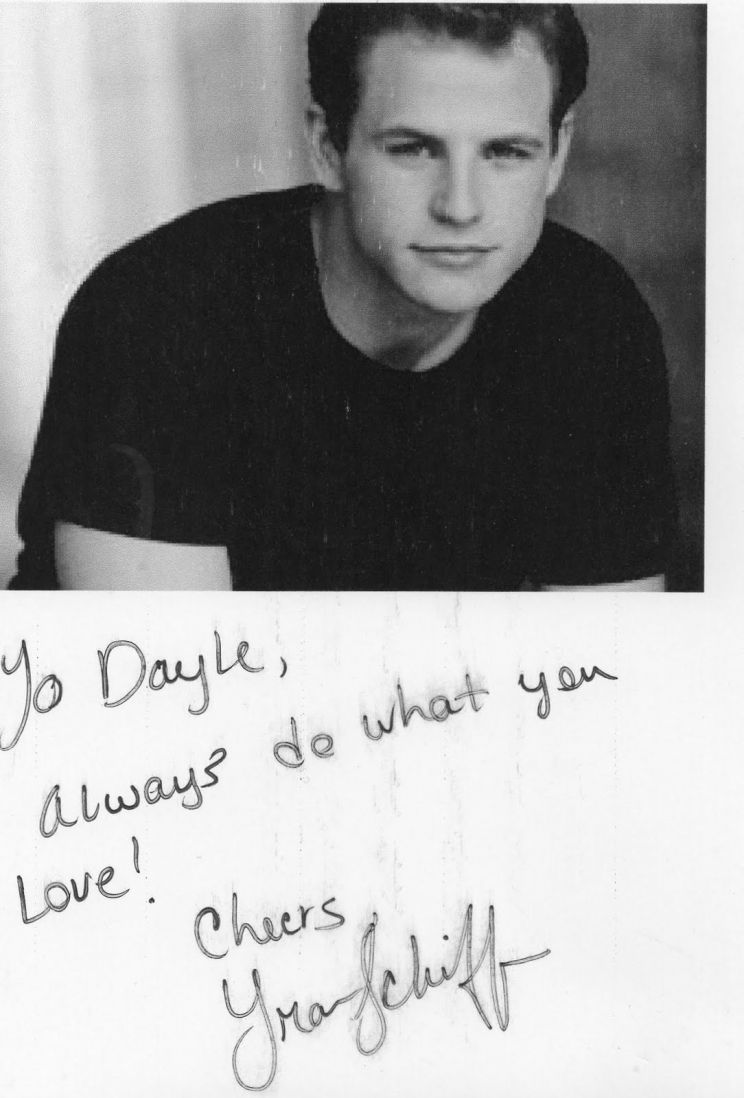 Yo Dayle,
Always do what you
Love!
Cheers
Schiff